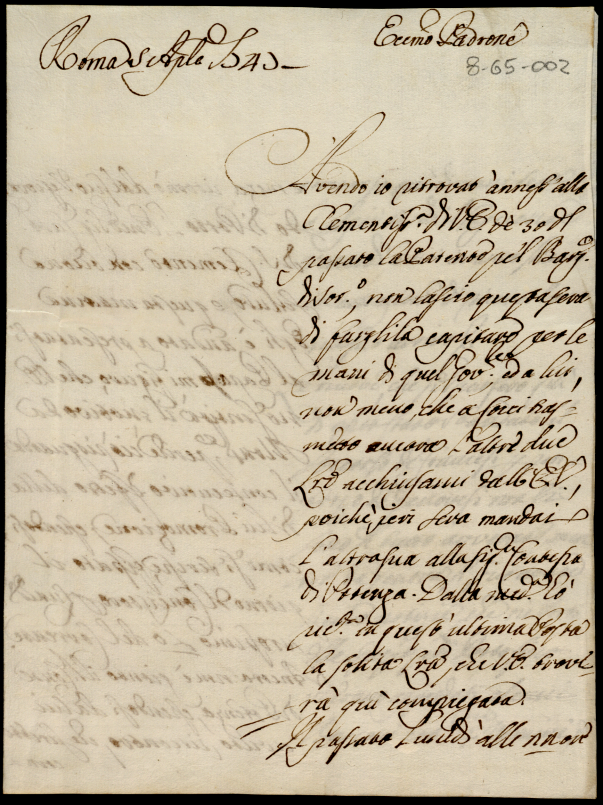 Eccmo Padrone
Roma 5 Aple 1743
8-65-002
Avendo io ritrovato anness' alla
Clementisa. di V.E. de 30 del
passato la Patente pel Barg.
di Sor.o, non lascio questa sera
di fargli la capitare per le
mani di quel Gov.re, ed a lui,
non meno, che a Socci tras-
metto ancora l'altre due
Lre acchiusami dall'E.V.,
poichè jeri sera mandai
l'altra sua alla Sig.a Contessa
di Potenza. Dalla med.a hò
ric.to in quest' ultima Posta
la solita Lra, che V.E. trove-
rà qui compiegata.
Il passato Lunedì alle nnove